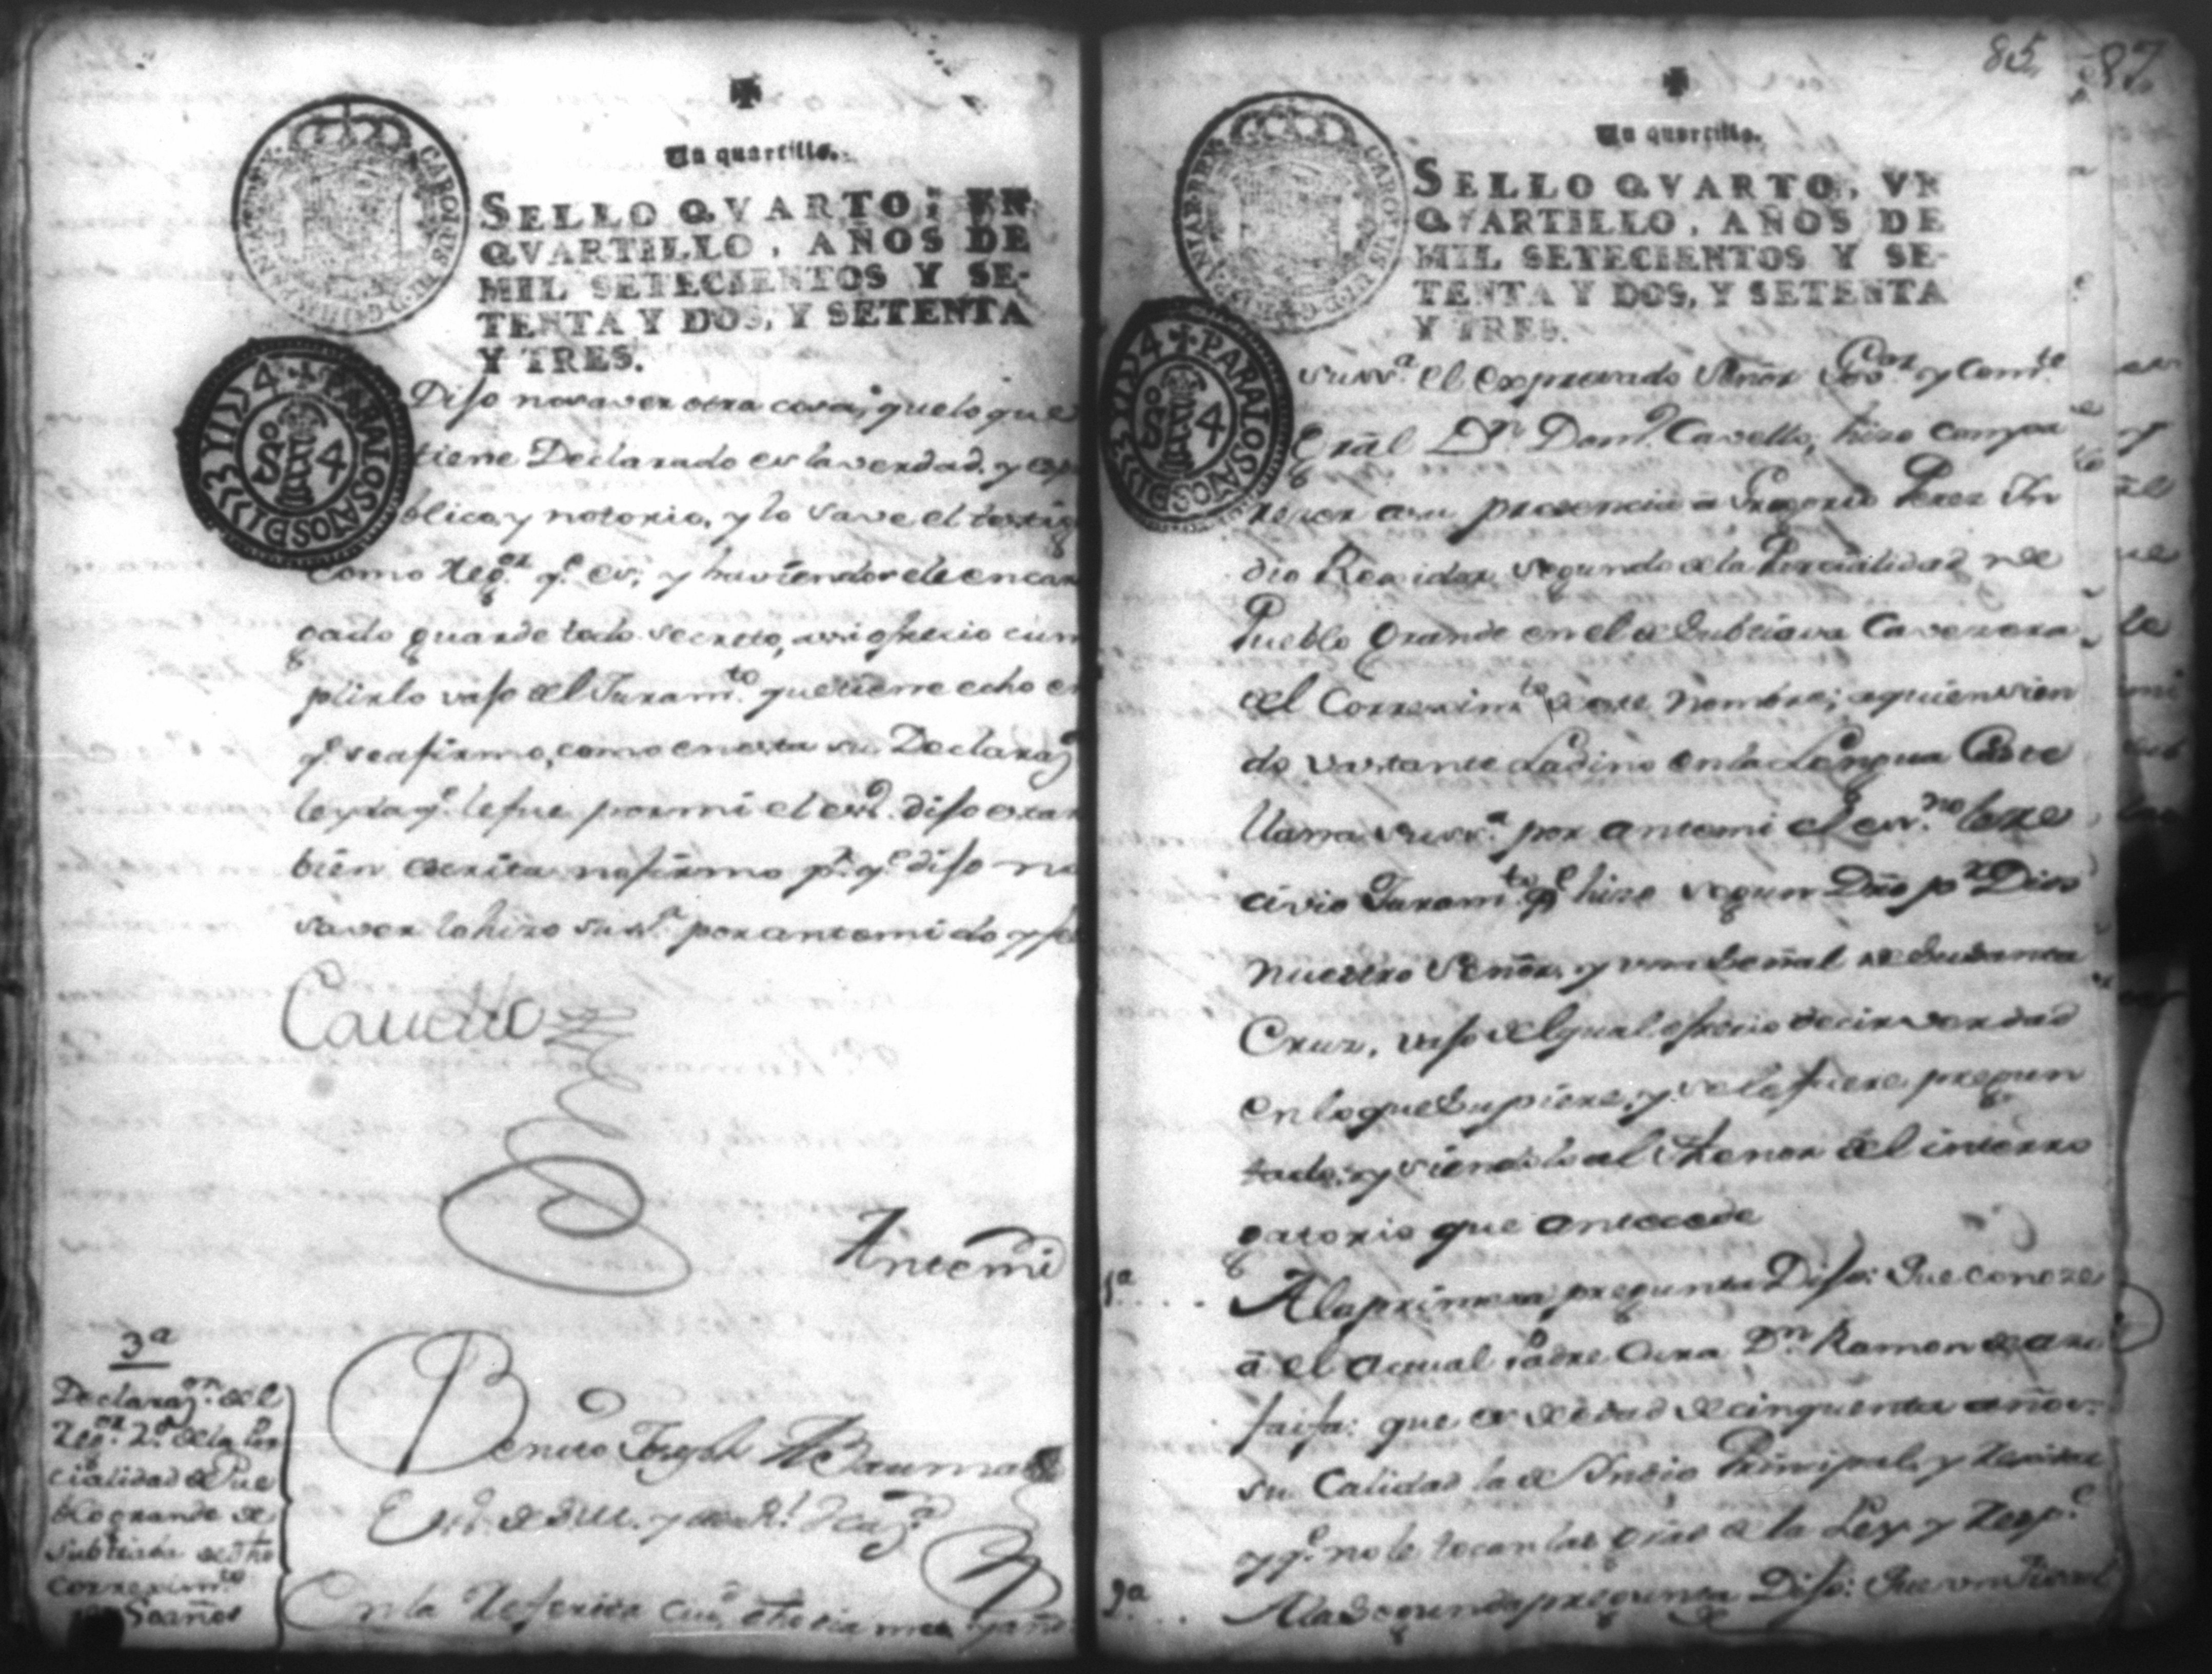 Un quartillo.
SELLO QVARTO, UN
QVARTILLO, AÑOS DE
MIL SETECIENTOS Y SE-
TENTA Y DOS, Y SETENTA
Y TRES.
CAROLUS III D G HISPANIAR REX
PARA LOS AÑOS DE 1773 Y 1774
SSo 4
Dijo no saver otra cosa, que lo que
tiene Declarado es la verdad, y
blico, y notorio, y lo save el testig
como Regor. qe. es, y haviendosele encar
gado guarde todo secreto, assi ofrecio cum
plirlo vajo del Juramto. que tiene echo en
qe. se afirmo, como en esta su Declarazn
leyda qe. le fue por mi el esno. dijo estar
bien escrita no firmo pr. qe. dijo no
saver lo hizo su sa. por ante mi doy fee
Cavello
Antemi
Benito Joseph
Esno. de
3a
Declarazon. del
Regor. 2o. de la Par
cialidad de Pue
blo grande de
Subtiava de dho
correximto
50 años
En la referida Ciud. dho dia mes y año
85 87
Un quartillo.
SELLO QVARTO, VN
QVARTILLO, AÑOS DE
MIL SETECIENTOS Y SE-
TENTA Y DOS, Y SETENTA
Y TRES.
PARA LOS AÑOS DE 1773 Y 1774
SSo 4
su ssa. el expresado Señor Govor. y Comte.
Gral Dn. Domo. Cavello, hizo compa
recer a su presencia a Gregorio Perez In
dio Rexidor segundo de la Parcialidad de
Pueblo Grande en el de Subtiava Cavezera
del Correximto. de este nombre; a quien sien
do vastante Ladino en la Lengua Caste
llana su ssa. por ante mi el essno. le re
civio Juramto. qe. hizo segun Dro pr. Dios
nuestro Señor, y una Señal de Su Santa
Cruz, vajo del qual ofrecio decir verdad
en lo que Supiere, y se le fuere pregun
tado; y siendolo al thenor del interro
gatorio que antecede
1a.... A la primera pregunta Dijo: Que conoze
à el actual Padre Cura Dn. Ramon de Azu
faifa: que es de edad de cinquenta años:
su Calidad la de Indio Principal, y Rexidor
y qe. no le tocan las grales de la Ley y respe.
2a.... A la Segunda pregunta Dijo: Que